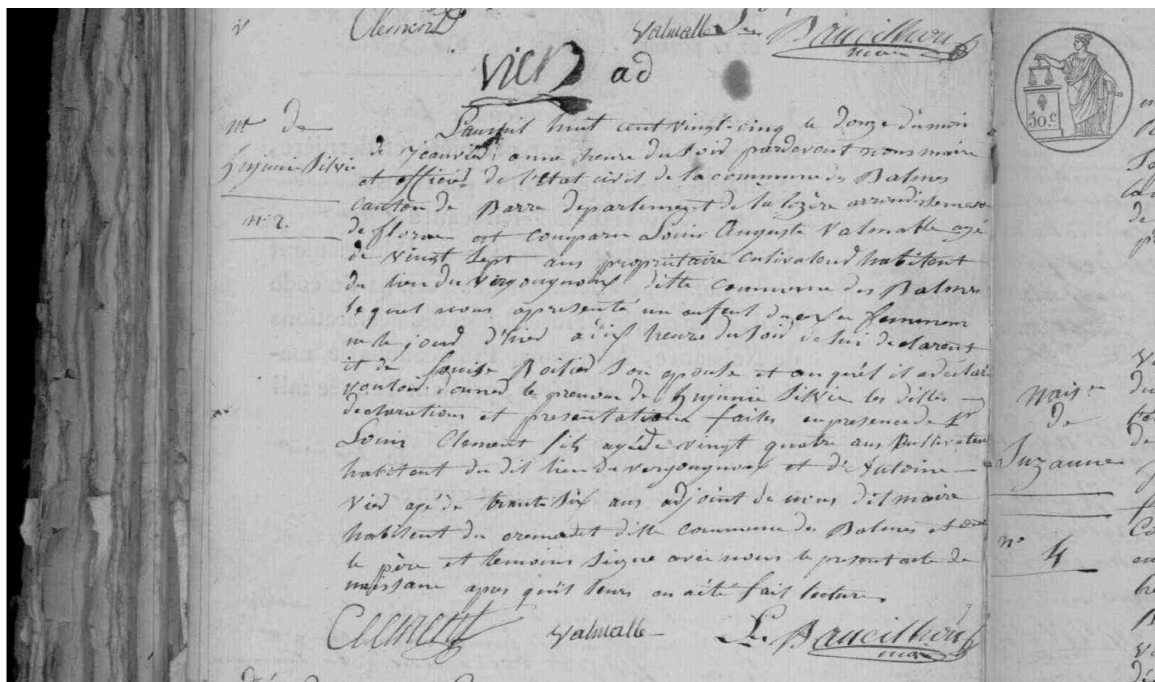 Clement Valmalle L. Baucilhon
maire
vier ad
nce de
hyjenie Silvie
n° 2.
L'an mil huit cent vingt-cinq le douze du mois
de janvier à une heure du soir pardevant nous maire
et officier de l'état civil de la commune des Balmes
canton de Barre departement de la lozère arrondissement
de florac est comparu Louis Auguste Valmalle agé
de vingt sept ans propriétaire cultivateur habitent
du lieu du vergougnoux ditte commune des Balmes
lequel nous a présenté un enfent du sexe feminin
né le jour d'hier à dix heure du soir de lui déclarent
et de Louise son epouse et au quel il a déclaré
vouloir donner le prenom de hyjenie Silvie les dittes
declarations et presentation faites en presence de Sr
Louis Clement fils agé de vingt quatre ans cultivateur
habitent du dit lieu du vergougnoux et d'Antoine
vier agé de trante six ans adjoint de nous dit maire
habitent du cremadet ditte commune des Balmes et ont
le père et temoins signé avec nous le present acte de
naissance apres qu'il leurs en a été fait lecture.
Clement Valmalle L. Baucilhon
maire
50 c
Nais.ce
de
Suzanne
n°
4